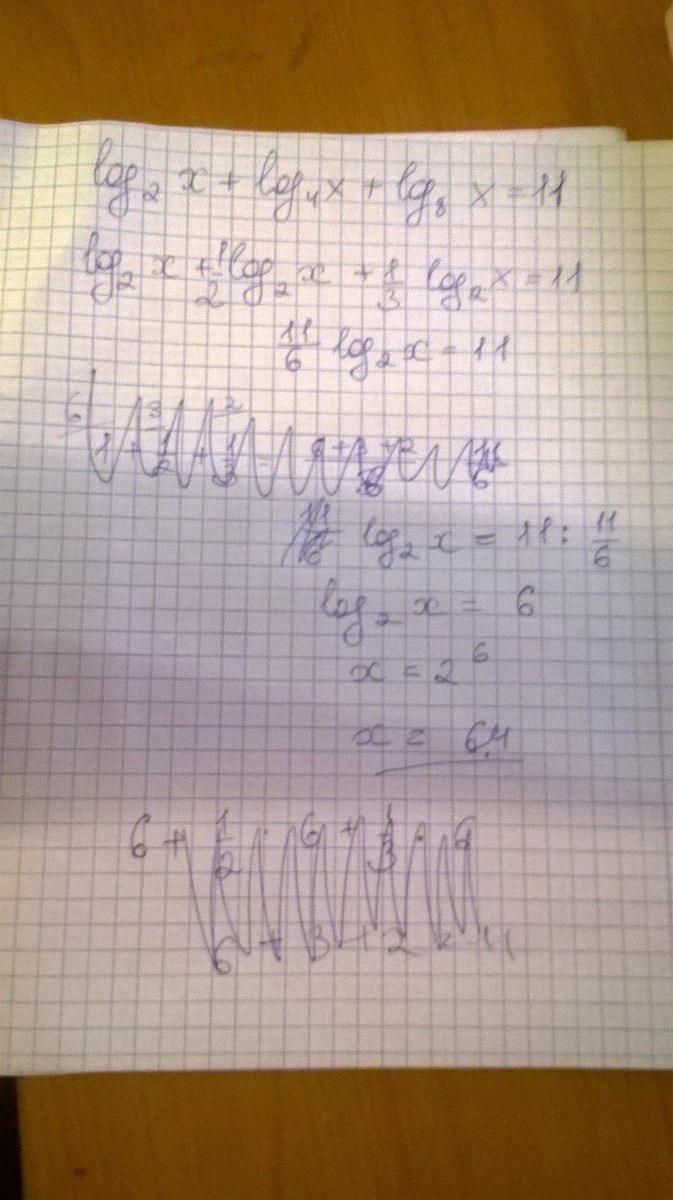 log₂ x + log₄ x + log₈ x = 11
log₂ x + 1/2 log₂ x + 1/3 log₂ x = 11
11/6 log₂ x = 11
log₂ x = 11 : 11/6
log₂ x = 6
x = 2⁶
x = 64
6 + 1/2 · 6 + 1/3 · 6
6 + 3 + 2 = 11